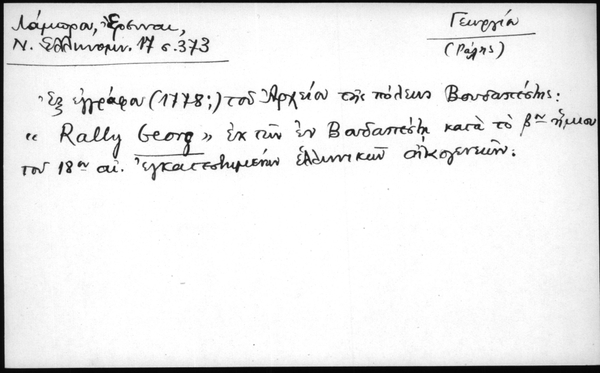 Λάμπρου, Ἔρευναι,
Ν. Ἑλληνομν. 17 σ. 373
Γεωργίου
(Ράλης)
Ἐξ ἐγγράφου (1778;) τοῦ Ἀρχείου τῆς πόλεως Βουδαπέστης:
« Rally Georg » ἐκ τῶν ἐν Βουδαπέστῃ κατὰ τὸ βον ἥμισυ
τοῦ 18ου αἰ. ἐγκατεστημένων ἑλληνικῶν οἰκογενειῶν.